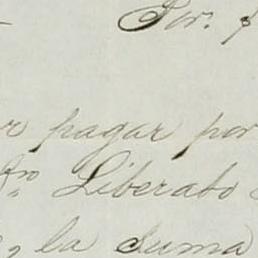 Por.
pagar por
Liberato
la suma